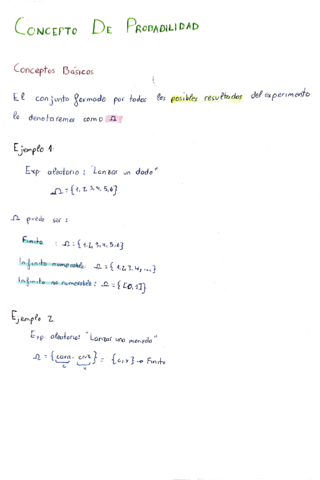 CONCEPTO DE PROBABILIDAD
Conceptos Básicos
El conjunto formado por todos los posibles resultados del experimento
lo denotaremos como Ω
Ejemplo 1:
Exp. aleatorio: "Lanzar un dado"
Ω = {1, 2, 3, 4, 5, 6}
Ω puede ser:
Finito : Ω = {1, 2, 3, 4, 5, 6}
Infinito numerable: Ω = {1, 2, 3, 4, ...}
Infinito no numerable: Ω = {[0, 1]}
Ejemplo 2
Exp. aleatorio: "Lanzar una moneda"
Ω = {cara, cruz} = {c, x} → Finito
c x